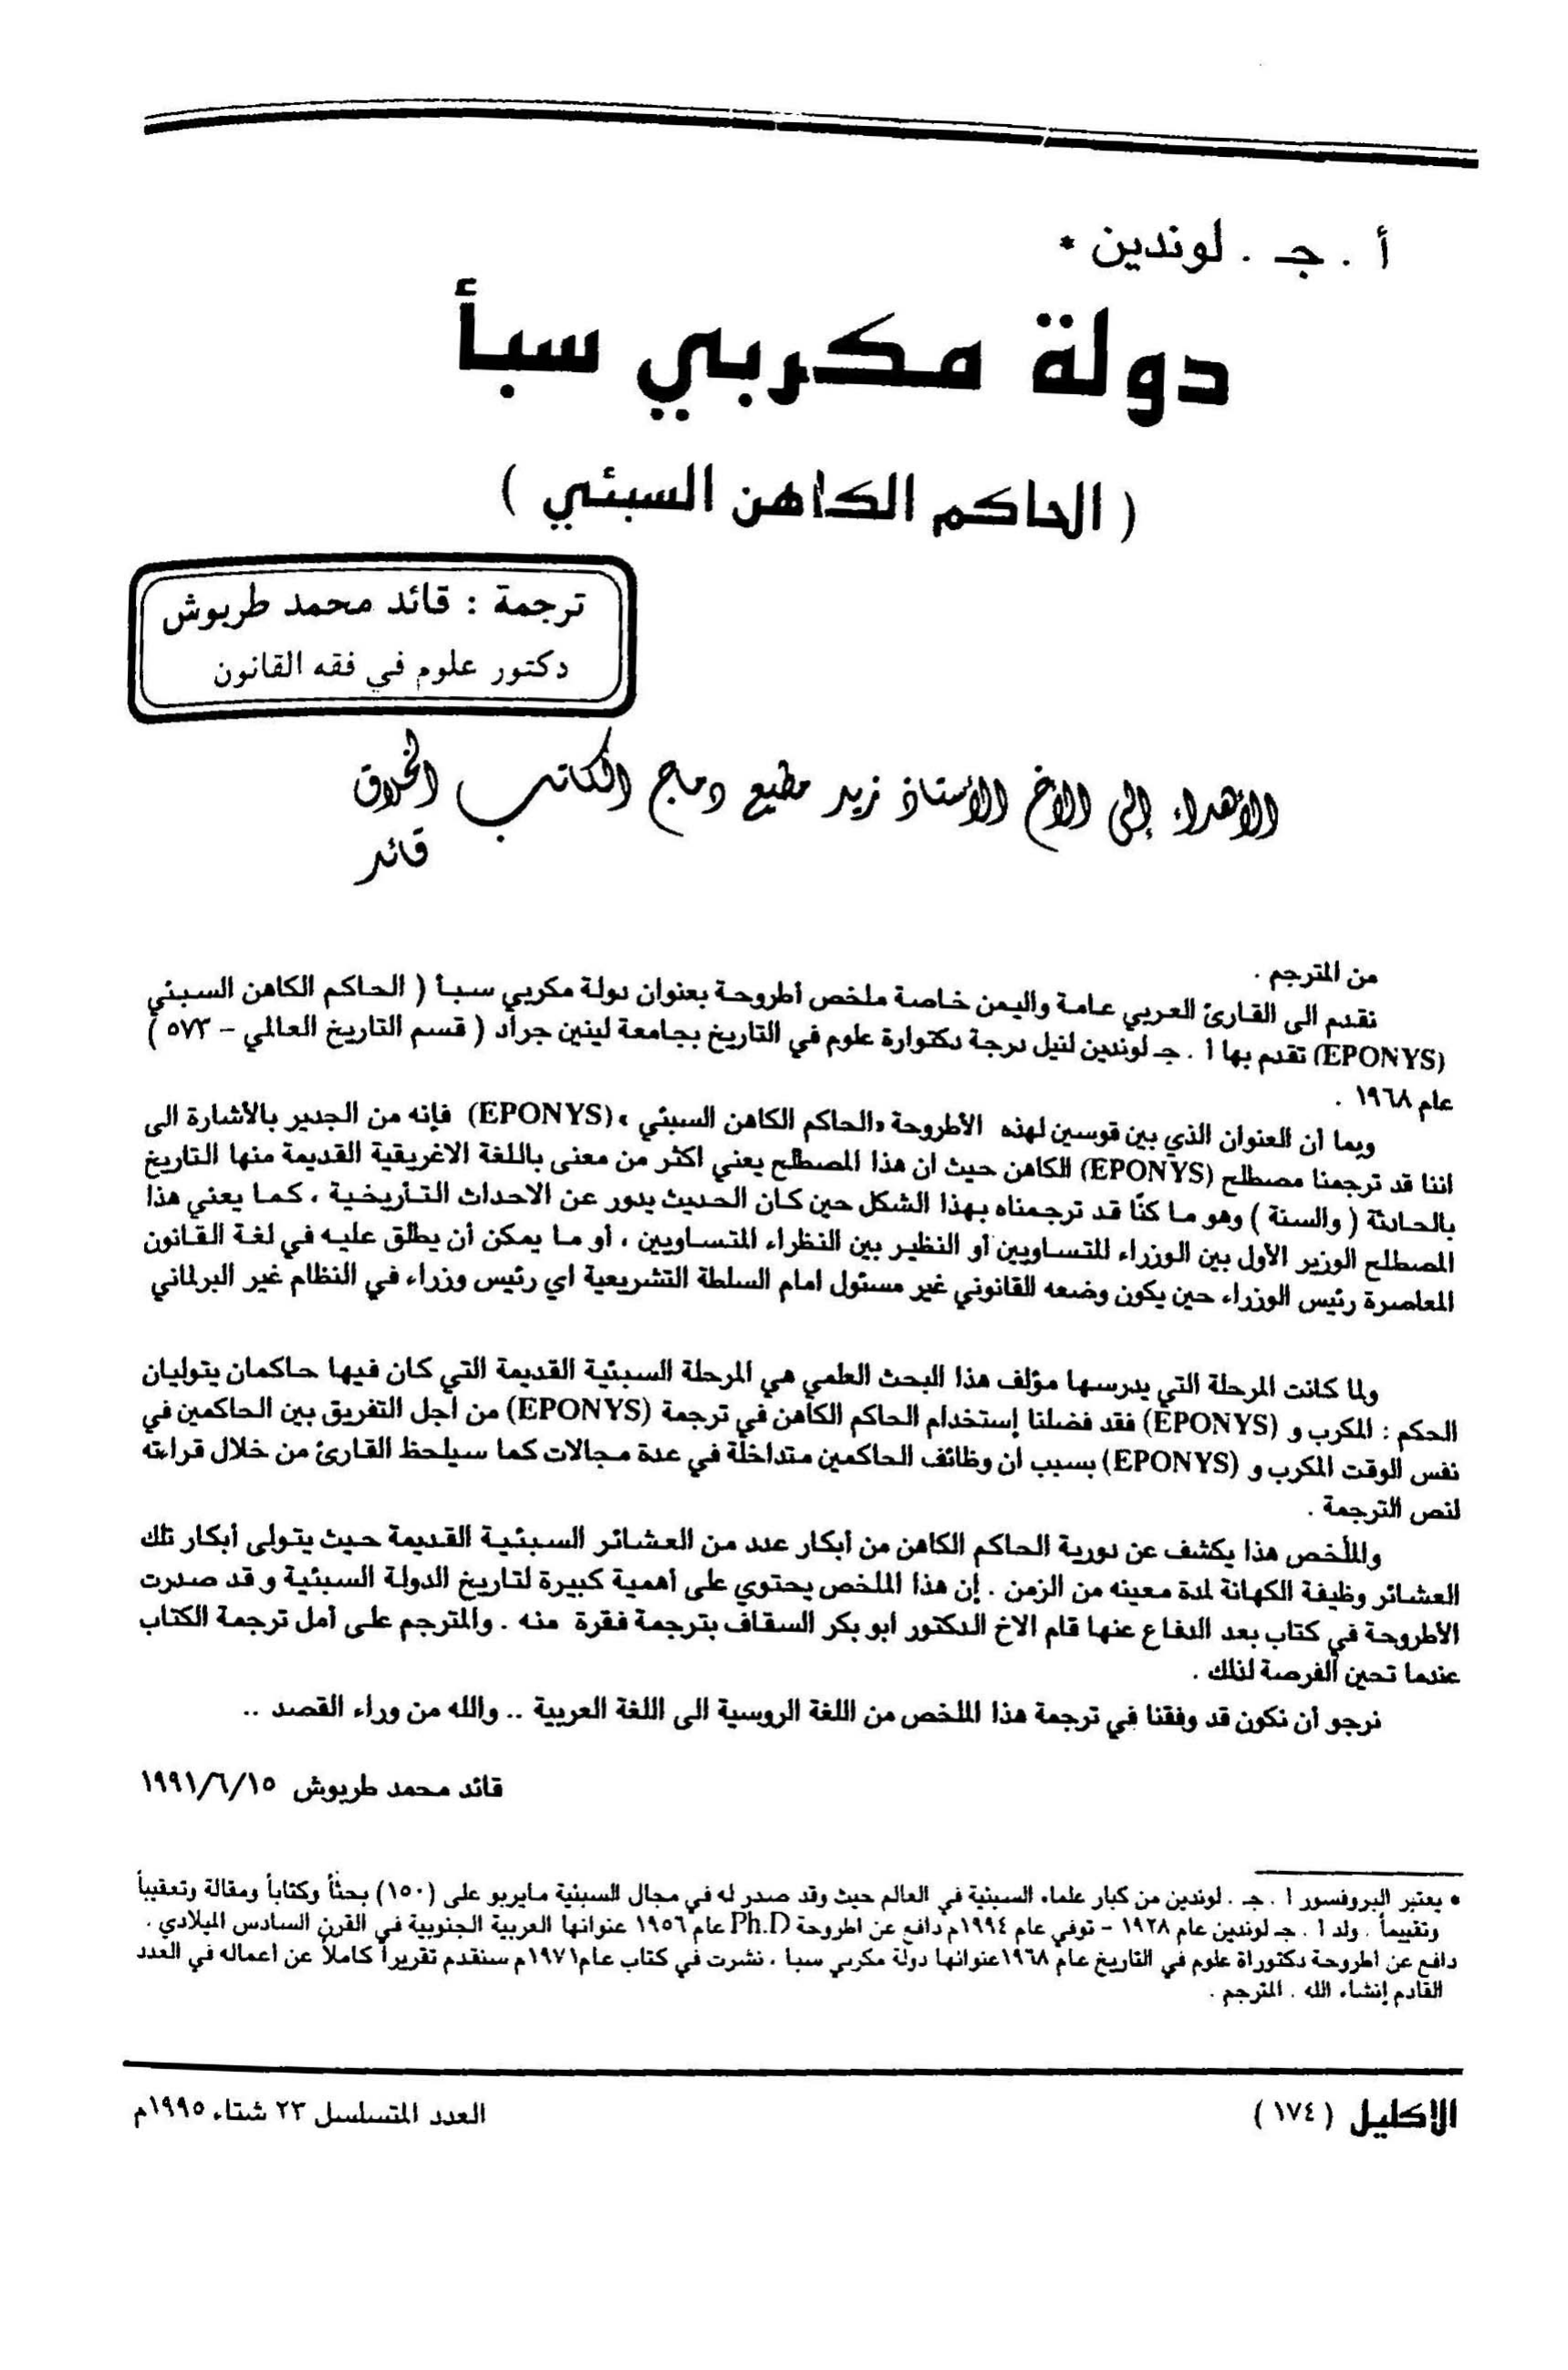 أ . جـ . لوندين *
دولة مكربي سبأ
( الحاكم الكاهن السبئي )
ترجمة : قائد محمد طربوش
دكتور علوم في فقه القانون
الأهداء إلى الاخ الأستاذ زيد مطيع دماج الكاتب الخلاق
قائد
من المترجم .
نقدم الى القارئ العربي عامة واليمن خاصة ملخص أطروحة بعنوان دولة مكربي سبأ ( الحاكم الكاهن السبئي
(EPONYS) تقدم بها أ . جـ لوندين لنيل درجة دكتوارة علوم في التاريخ بجامعة لينين جراد ( قسم التاريخ العالمي - ٥٧٣ )
عام ١٩٦٨ .
وبما أن العنوان الذي بين قوسين لهذه الأطروحة «الحاكم الكاهن السبئي »(EPONYS) فإنه من الجدير بالأشارة الى
اننا قد ترجمنا مصطلح (EPONYS) الكاهن حيث ان هذا المصطلح يعني اكثر من معنى باللغة الاغريقية القديمة منها التاريخ
بالحادثة ( والسنة ) وهو ما كنّا قد ترجمناه بهذا الشكل حين كان الحديث يدور عن الاحداث التأريخية ، كما يعني هذا
المصطلح الوزير الأول بين الوزراء المتساويين أو النظير بين النظراء المتساويين ، أو ما يمكن أن يطلق عليه في لغة القانون
المعاصرة رئيس الوزراء حين يكون وضعه القانوني غير مسئول امام السلطة التشريعية اي رئيس وزراء في النظام غير البرلماني
ولما كانت المرحلة التي يدرسها مؤلف هذا البحث العلمي هي المرحلة السبئية القديمة التي كان فيها حاكمان يتوليان
الحكم : المكرب و (EPONYS) فقد فضلنا إستخدام الحاكم الكاهن في ترجمة (EPONYS) من أجل التفريق بين الحاكمين في
نفس الوقت المكرب و (EPONYS) بسبب أن وظائف الحاكمين متداخلة في عدة مجالات كما سيلحظ القارئ من خلال قراءته
لنص الترجمة .
والملخص هذا يكشف عن دورية الحاكم الكاهن من أبكار عدد من العشائر السبئية القديمة حيث يتولى أبكار تلك
العشائر وظيفة الكهانة لمدة معينه من الزمن . إن هذا الملخص يحتوي على أهمية كبيرة لتاريخ الدولة السبئية و قد صدرت
الأطروحة في كتاب بعد الدفاع عنها قام الاخ الدكتور ابو بكر السقاف بترجمة فقرة منه . والمترجم على أمل ترجمة الكتاب
عندما تحين الفرصة لذلك .
نرجو أن نكون قد وفقنا في ترجمة هذا الملخص من اللغة الروسية الى اللغة العربية .. والله من وراء القصد ..
قائد محمد طربوش ١٩٩١/٦/١٥
* يعتبر البروفسور أ . جـ . لوندين من كبار علماء السبئية في العالم حيث وقد صدر له في مجال السبئية مايربو على (١٥٠) بحثاً وكتاباً ومقالة وتعقيباً
وتقييماً . ولد أ . جـ لوندين عام ١٩٢٨ - توفي عام ١٩٩٤م دافع عن اطروحة Ph.D عام ١٩٥٦ عنوانها العربية الجنوبية في القرن السادس الميلادي .
دافع عن اطروحة دكتوراة علوم في التاريخ عام ١٩٦٨ عنوانها دولة مكربي سبا ، نشرت في كتاب عام ١٩٧١م سنقدم تقريراً كاملاً عن اعماله في العدد
القادم إنشاء الله . المترجم .
الاكليل ( ١٧٤ )
العدد المتسلسل ٢٣ شتاء ١٩٩٥م